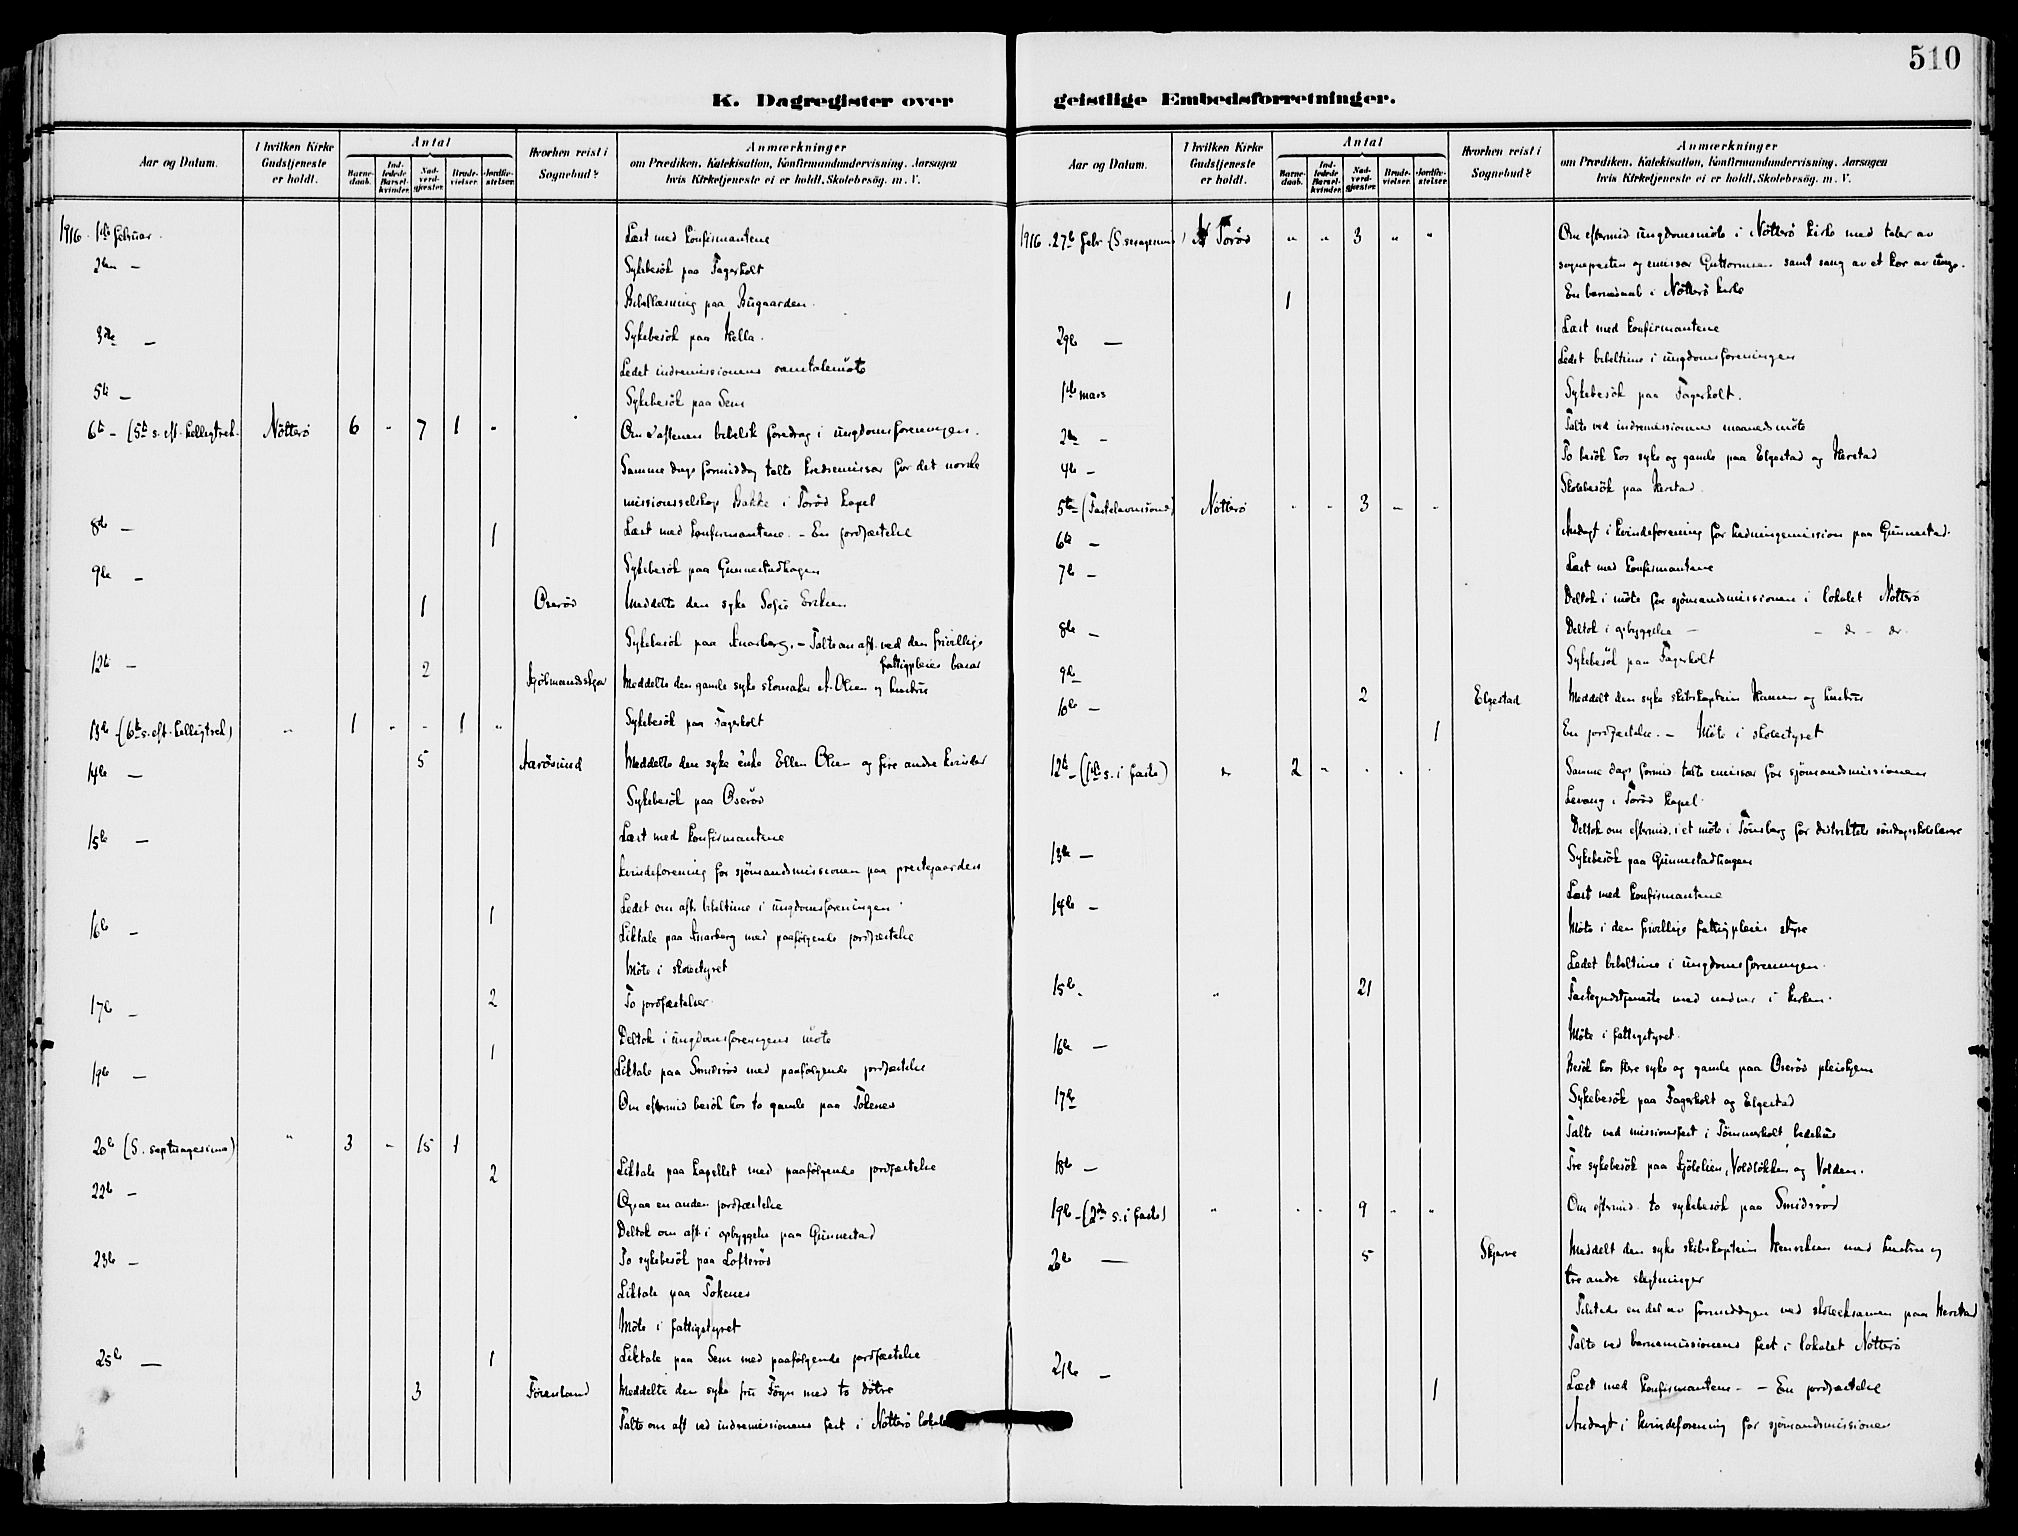 510
K. Dagregister over
Aar og Datum.
I hvilken Kirke Gudstjeneste er holdt.
Antal
Barne-daab.
Ind-ledede Barsel-kvinder.
Nad-verd-gjæster.
Brude-vielser.
Jordfæ-stelser.
Hvorhen reist i Sognebud?
Anmærkninger
om Prædiken, Katekisation, Konfirmandundervisning, Aarsagen
hvis Kirketjeneste ei er holdt, Skolebesög. m. V.
1916. 1ste februar. Læst med konfirmantene
2den – Sykebesök paa Fagerholt
Bibellæsning paa Bugaarden.
3die – Sykebesök paa Hella.
Ledet indremissionens samtalemöte
5te – Sykebesök paa Sem
6te – (5te s. eft. helligtrek. Nötterö 6 - 7 1 - Om aftenen bibelsk foredrag i ungdomsforeningen.
Samme dags formiddag talte kredsemissær for det norske
missionsselskap Bakke i Torød kapel
8de – 1 Læst med konfirmantene. – En jordfæstelse
9de – Sykebesök paa Gunnestadhagen
1 Oserød Meddelte den syke Sofie Eriksen
Sykebesök paa Knarberg. – Talte om aft. ved den frivillige
fattigpleies basar
12te – 2 Meddelte den gamle syke skomaker A. Olsen og hustru
13de – (6te s. eft. helligtrek) " 1 - - 1 " Sykebesök paa Fagerholt
14de – 5 Aarösund Meddelte den syke enke Ellen Olsen og fire andre kvinder
Sykebesök paa Oserød
15de – Læst med konfirmantene
Kvindeforening for sjømandsmissionen paa prestegaarden
Ledet om aft. bibeltime i ungdomsforeningen.
16de – 1 Liktale paa Knarberg med paafölgende jordfæstelse
Möte i skolestyret
17de – 2 To jordfæstelser.
Deltok i ungdomsforeningens möte
19de – 1 Liktale paa Smidsrød med paafölgende jordfæstelse
Om eftermid besök hos to gamle paa Tokenes
20de (S. septuagesima) " 3 - 15 1
22de – 2 Liktale paa kapellet med paafölgende jordfæstelse
Ogsaa en anden jordfæstelse
Deltok om aft. i opbyggelse paa Gunnestad
23de – To sykebesök paa Lofterød
Liktale paa Tokenes
Möte i fattigstyret
25de – 1 Liktale paa Sem med paafölgende jordfæstelse
3 Föienland Meddelte den syke fru Föyn med to dötre
Talte om aft ved indremissionens fest i Nötterö lokale
geistlige Embedsforretninger.
Aar og Datum.
I hvilken Kirke Gudstjeneste er holdt.
Antal
Barne-daab.
Ind-ledede Barsel-kvinder.
Nad-verd-gjæster.
Brude-vielser.
Jordfæ-stelser.
Hvorhen reist i Sognebud?
Anmærkninger
om Prædiken, Katekisation, Konfirmandundervisning, Aarsagen
hvis Kirketjeneste ei er holdt, Skolebesög. m. V.
1916. 27de febr (S. sexagesima) Torød " " 3 " " Om eftermid ungdomsmöte i Nötterö kirke med taler av
sognepresten og emissær Guttormsen samt sang av et kor av unge.
1 En barnedaab i Nötterö kirke
29de – Læst med konfirmantene
Ledet bibeltime i ungdomsforeningen
1ste mars Sykebesök paa Fagerholt.
2den – Talte ved indremissionens maanedsmöte
4de – To besök hos syke og gamle paa Elgestad og Herstad
Skolebesök paa Herstad.
5te – (Fastelavnssønd) Nötterö - - 3 - -
6te – Andagt i kvindeforening for hedningemission paa Gunnestad.
7de – Læst med konfirmantene
Deltok i möte for sjømandsmissionen i lokalet Nötterö
8de – Deltok i opbyggelse – – do – do.
9de – Sykebesök paa Fagerholt
10de – 2 Elgestad Meddelt den syke skibskaptein Hansen og hustru
1 En jordfæstelse. – Möte i skolestyret
12te – (1ste s. i faste) " 2 " - - - Samme dags formid. talte emissær for sjømandsmissionen
Levang i Torød kapel.
Deltok om eftermid. i et möte i Tönsberg for distriktets søndagsskolelærere
13de – Sykebesök paa Gunnestadhagen
14de – Læst med konfirmantene
Möte i den frivillige fattigpleies styre
Ledet bibeltime i ungdomsforeningen.
15de – " 21 Fastegudstjeneste med nadver i kirken.
16de – Möte i fattigstyret.
Besök hos flere syke og gamle paa Oserød pleiehjem
17de – Sykebesök paa Fagerholt og Elgestad
Talte ved missionsfest i Tömmerholt bedehus
18de – Tre sykebesök paa Kjölelien, Voldlökken og Volden.
19de – (2den s. i faste) " - - 9 - " Om eftermid. to sykebesök paa Smidsrød
20de – 5 Skjerve Meddelt den syke skibskaptein Henriksen med hustru og
tre andre slegtninger
Tilstede en del av formiddagen ved skoleeksamen paa Herstad
Talte ved barnemissionens fest i lokalet Nötterö
21de – 1 Læst med konfirmantene – – En jordfæstelse
Andagt i kvindeforening for sjømandsmissionen